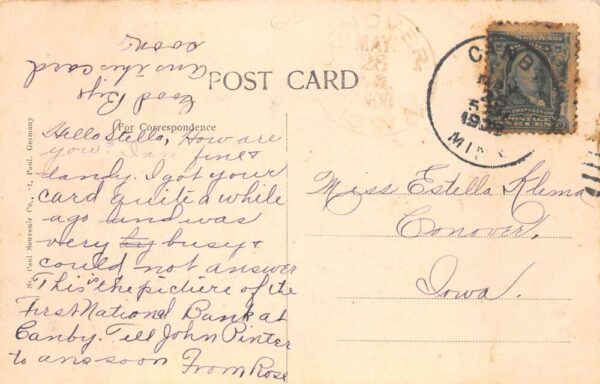 POST CARD
For Correspondence
Hello Stella, How are
you? I am fine &
dandy. I got your
card quite a while
ago and was
very busy &
could not answer
This is the pictiere of the
First National Bank at
Canby. Tell John Pinter
to ans soon From Rose
Good Bye
ans this card
soon
Miss Estella Klema
Conover,
Iowa.
St. Paul Souvenir Co., St. Paul, Germany
CANBY
MINN
CONOVER
MAY
28